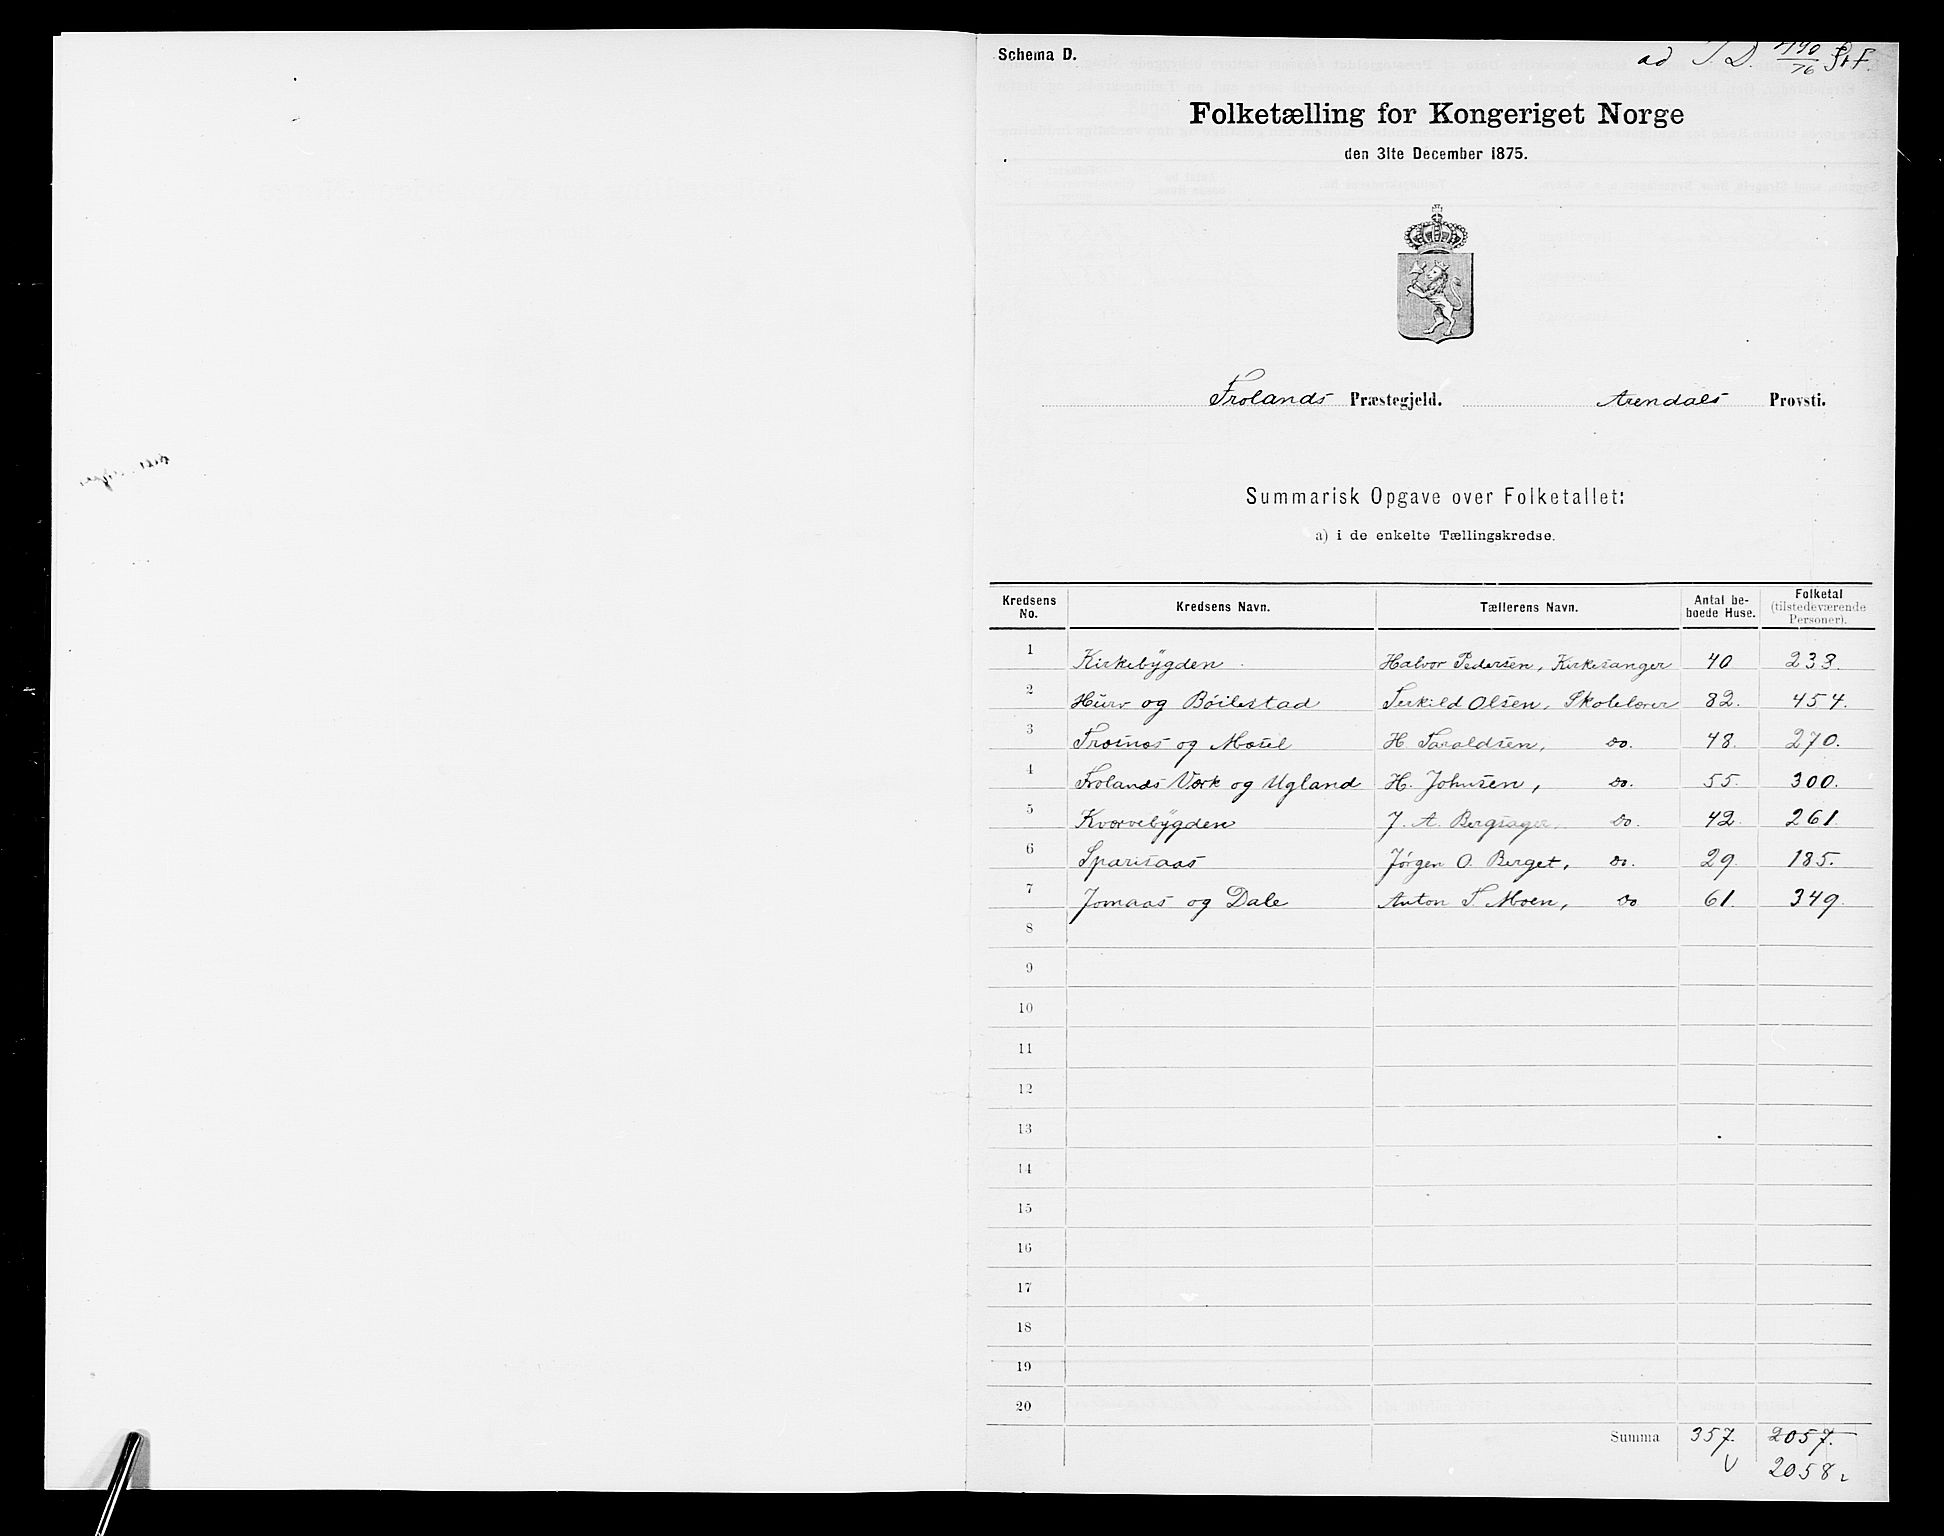 Schema D.
ad I. D. 1190/76 St F.
Folketælling for Kongeriget Norge
den 31te December 1875.
Frolands Præstegjeld. Arendals Provsti.
Summarisk Opgave over Folketallet:
a) i de enkelte Tællingskredse.
Kredsens No. Kredsens Navn. Tællerens Navn. Antal beboede Huse. Folketal (tilstedeværende Personer).
1 Kirkebygden Halvor Pedersen, Kirkesanger 40 238.
2 Hurv og Böilestad Terkild Olsen, Skolelærer 82. 454.
3 Trøsnæs og Mosel H. Taraldsen, Do. 48. 270.
4 Frolands Værk og Ugland H. Johnsen, Do. 55. 300.
5 Kværvebygden J. A. Bergsager, Do. 42. 261.
6 Sparsaas Jörgen O. Berget, Do. 29. 185.
7 Jomaas og Dale Anton T. Moen, Do 61. 349.
8
9
10
11
12
13
14
15
16
17
18
19
20
Summa 357. 2057.
2058